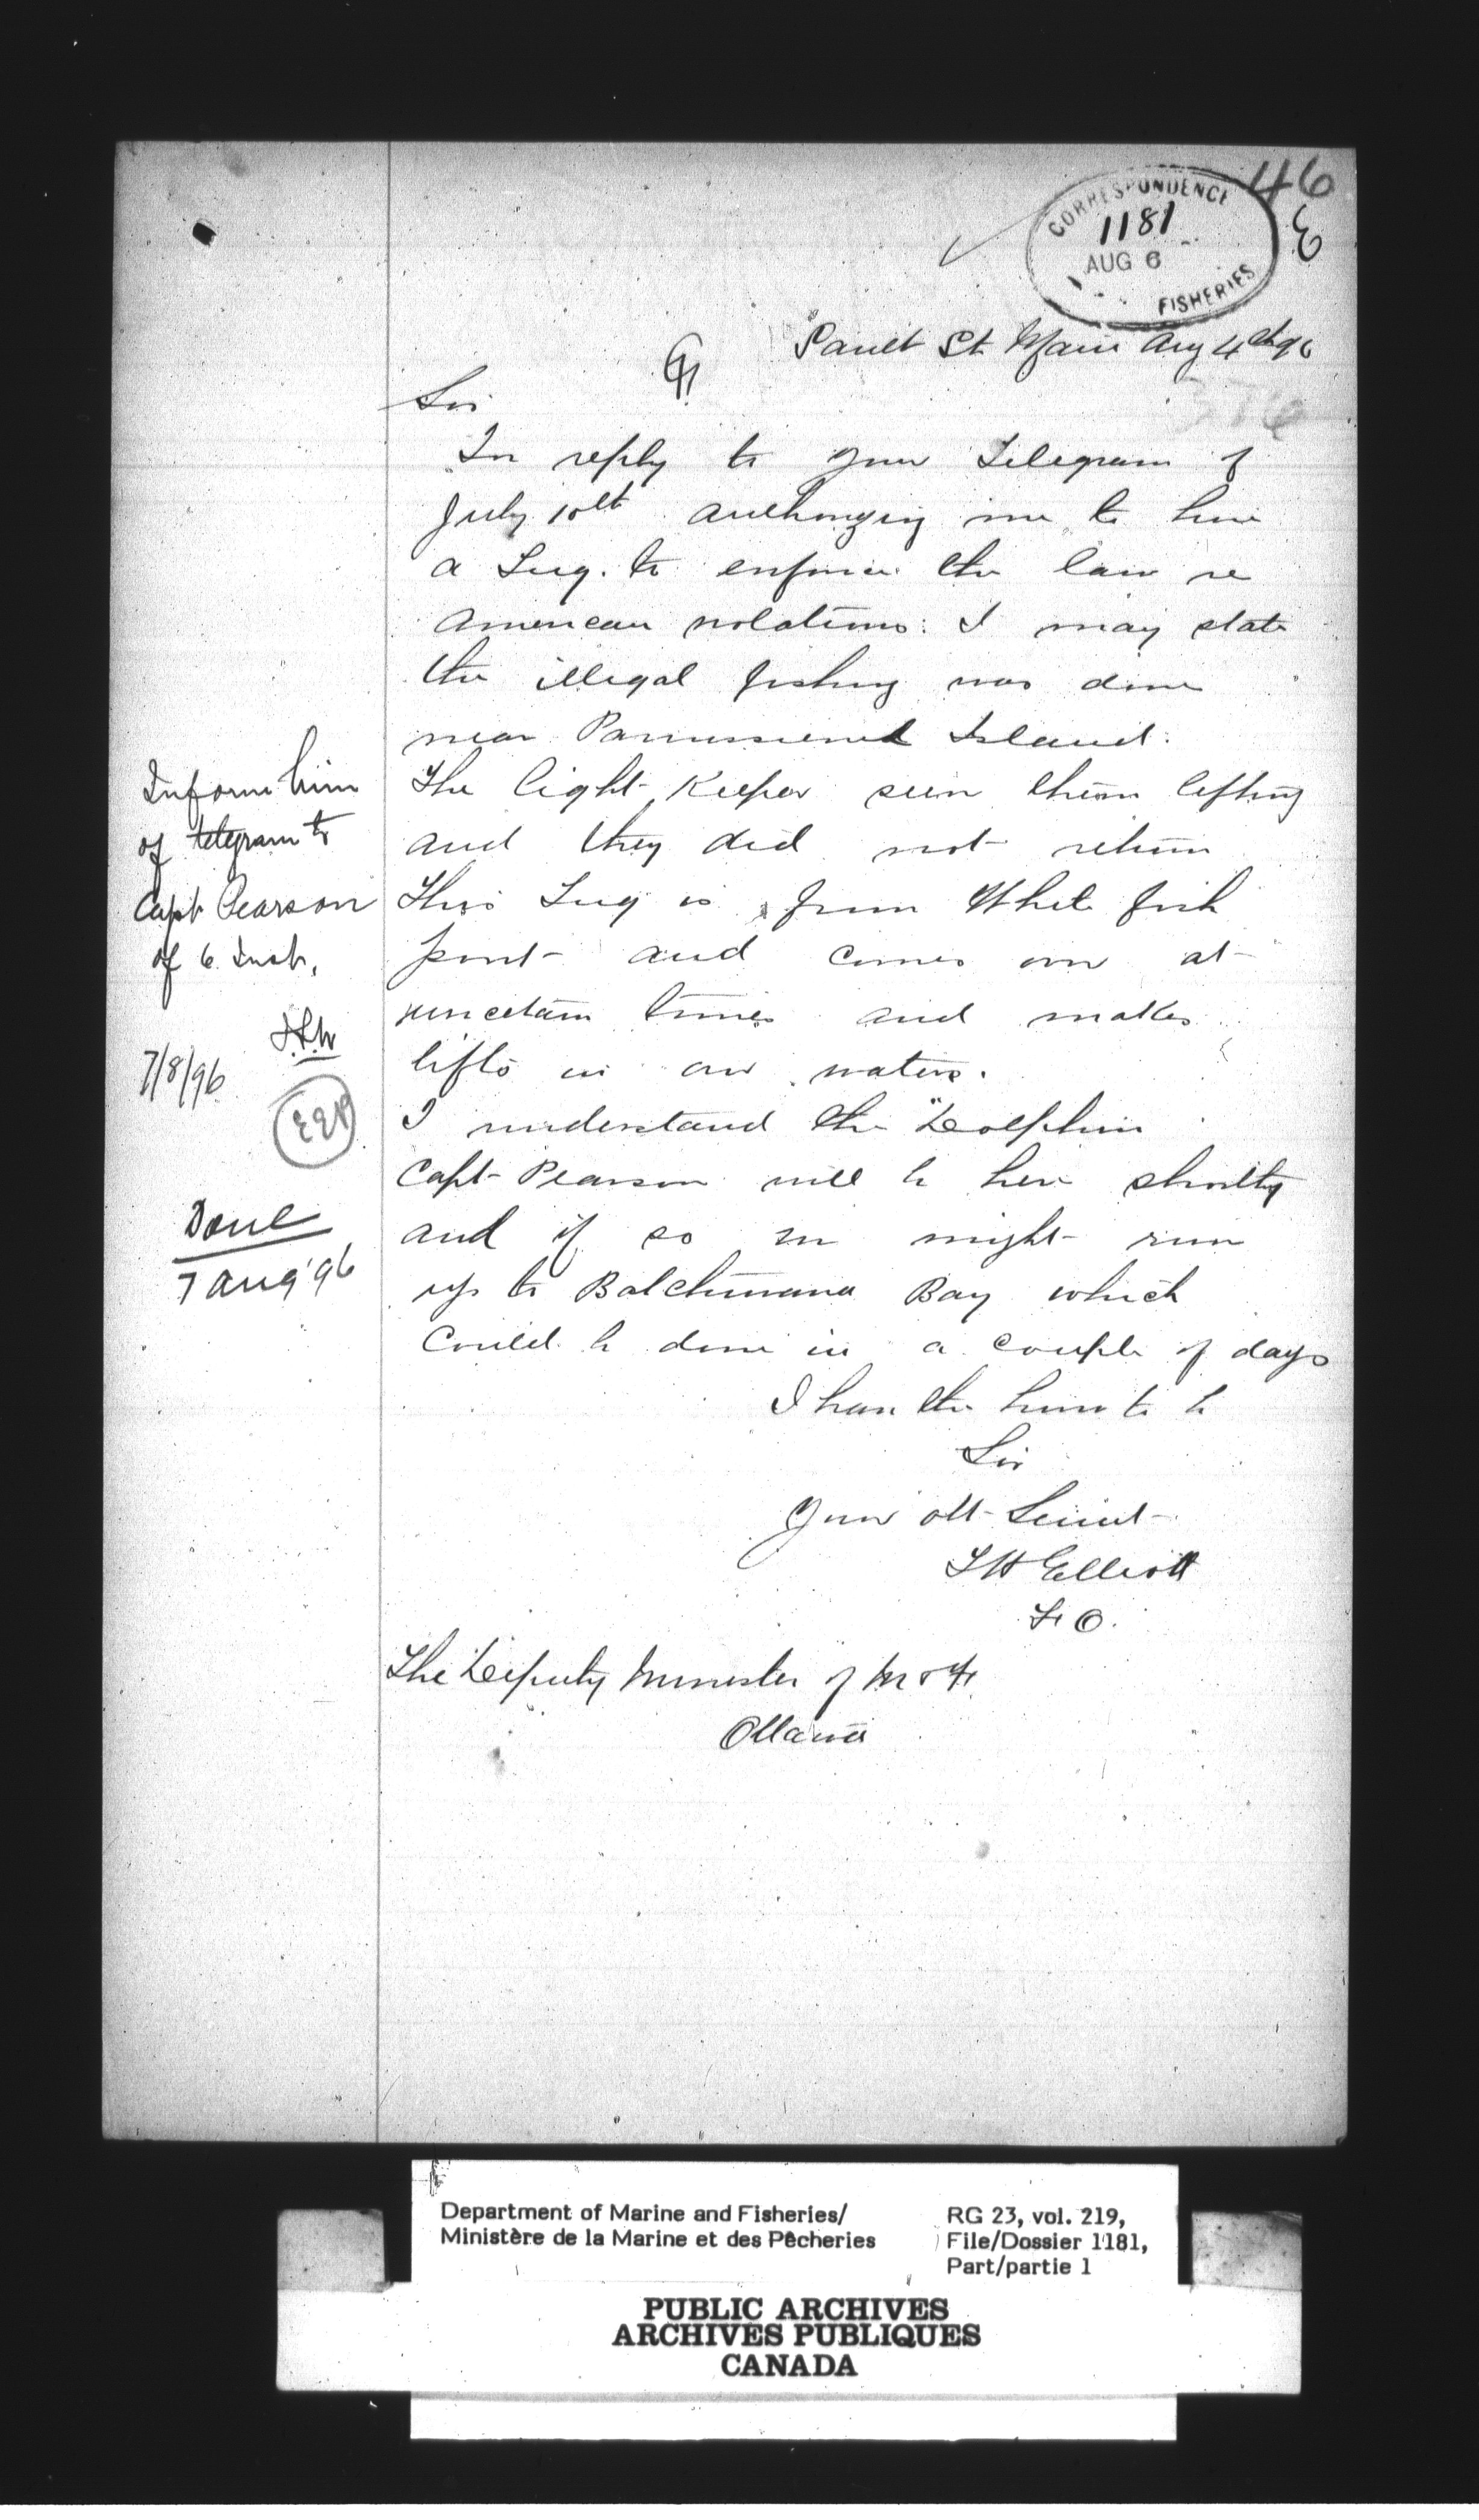 46
E
CORRESPONDENCE
1181
AUG 6
FISHERIES
Sault St Marie Aug 4th 96
Sir
In reply to your Telegram of
July 10th authorizing me to hire
a Tug. to enforce the law re
American violations: I may state
the illegal fishing was done
near Island.
The light Keeper seen them lifting
and they did not return
This Tug is from White fish
point and comes over at
uncertain times and makes
lifts in our waters.
I understand the "Dolphin
Capt Pearson will be here shortly
and if so we might run
up to Batchewana Bay which
Could be done in a couple of days
I have the honor to be
Sir
Your obt Servt
Elliott
F O.
The Deputy Minister of M & F.
Ottawa
Inform him
of telegram to
Capt Pearson
of 6 Inst.
7/8/96
Done
7 Aug '96
Department of Marine and Fisheries/
Ministère de la Marine et des Pêcheries
RG 23, vol. 219,
File/Dossier 1181,
Part/partie 1
PUBLIC ARCHIVES
ARCHIVES PUBLIQUES
CANADA